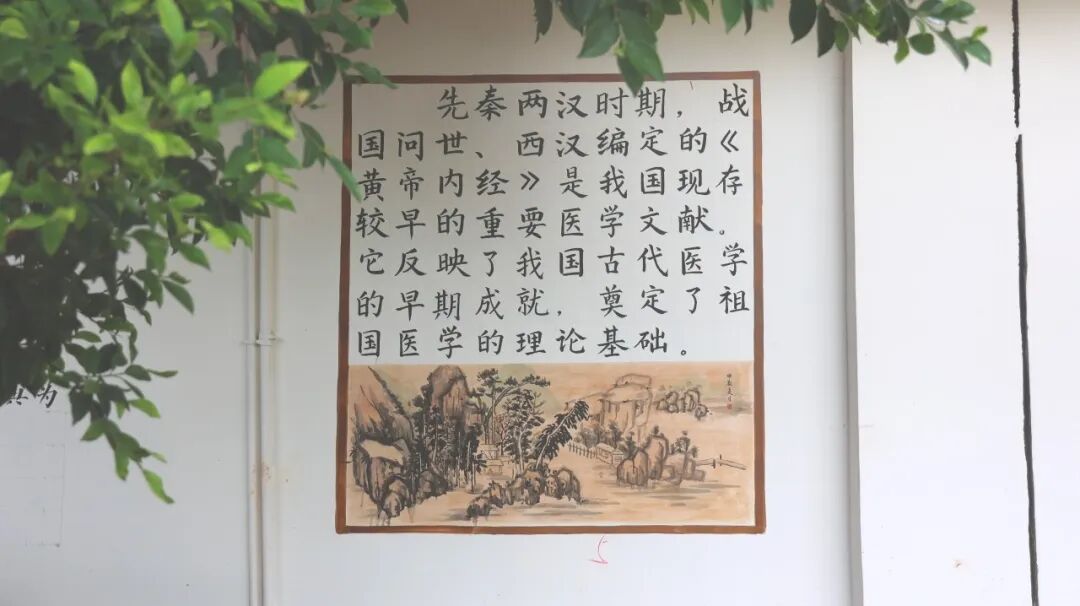 先秦两汉时期，战
国问世、西汉编定的《
黄帝内经》是我国现存
较早的重要医学文献。
它反映了我国古代医学
的早期成就，奠定了祖
国医学的理论基础。
为
5